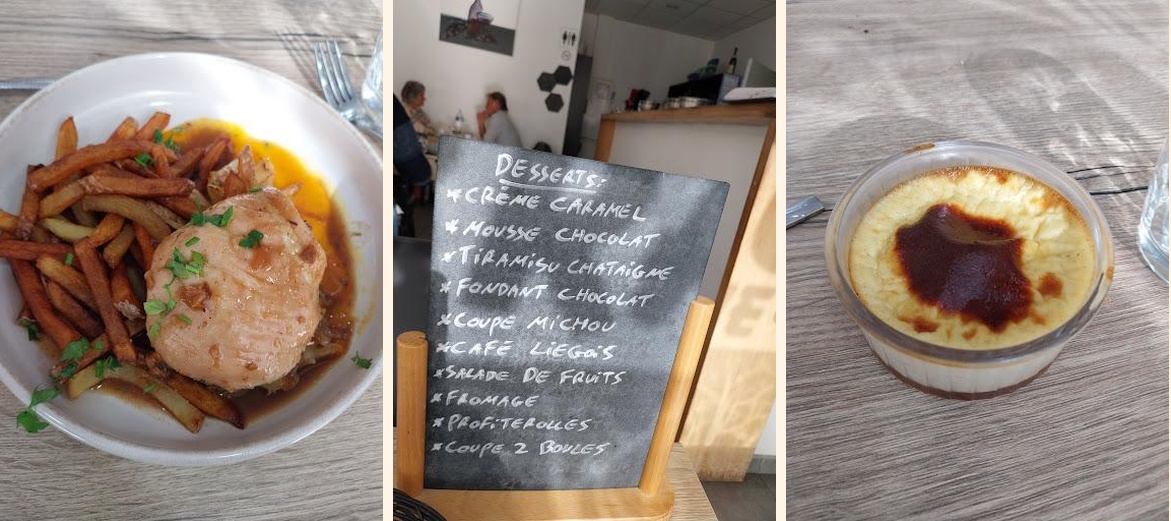 DESSERTS:
*CRÈME CARAMEL
*MOUSSE CHOCOLAT
*TIRAMISU CHATAIGNE
*FONDANT CHOCOLAT
*COUPE MICHOU
*CAFÉ LIEGOIS
*SALADE DE FRUITS
*FROMAGE
*PROFITEROLLES
*COUPE 2 BOULES